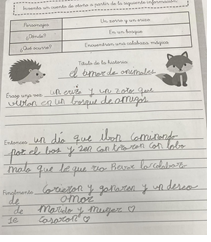 Inventa un cuento de otoño a partir de la siguiente información:
Personajes
Un zorro y un erizo
¿Dónde?
En un bosque
¿Qué ocurre?
Encuentran una calabaza mágica
Título de la historia:
el amor de animales
Érase una vez un erizo y un zoro que
vivian en un bosque de amigos
Entonces un dia que iban caminando
por el bos y zon con traron con lobo
malo que le que ria la calabaza
Finalmente corrieron y ganaron y un deseo
de amor
de Marido y Mujer ♡
corazon ♡